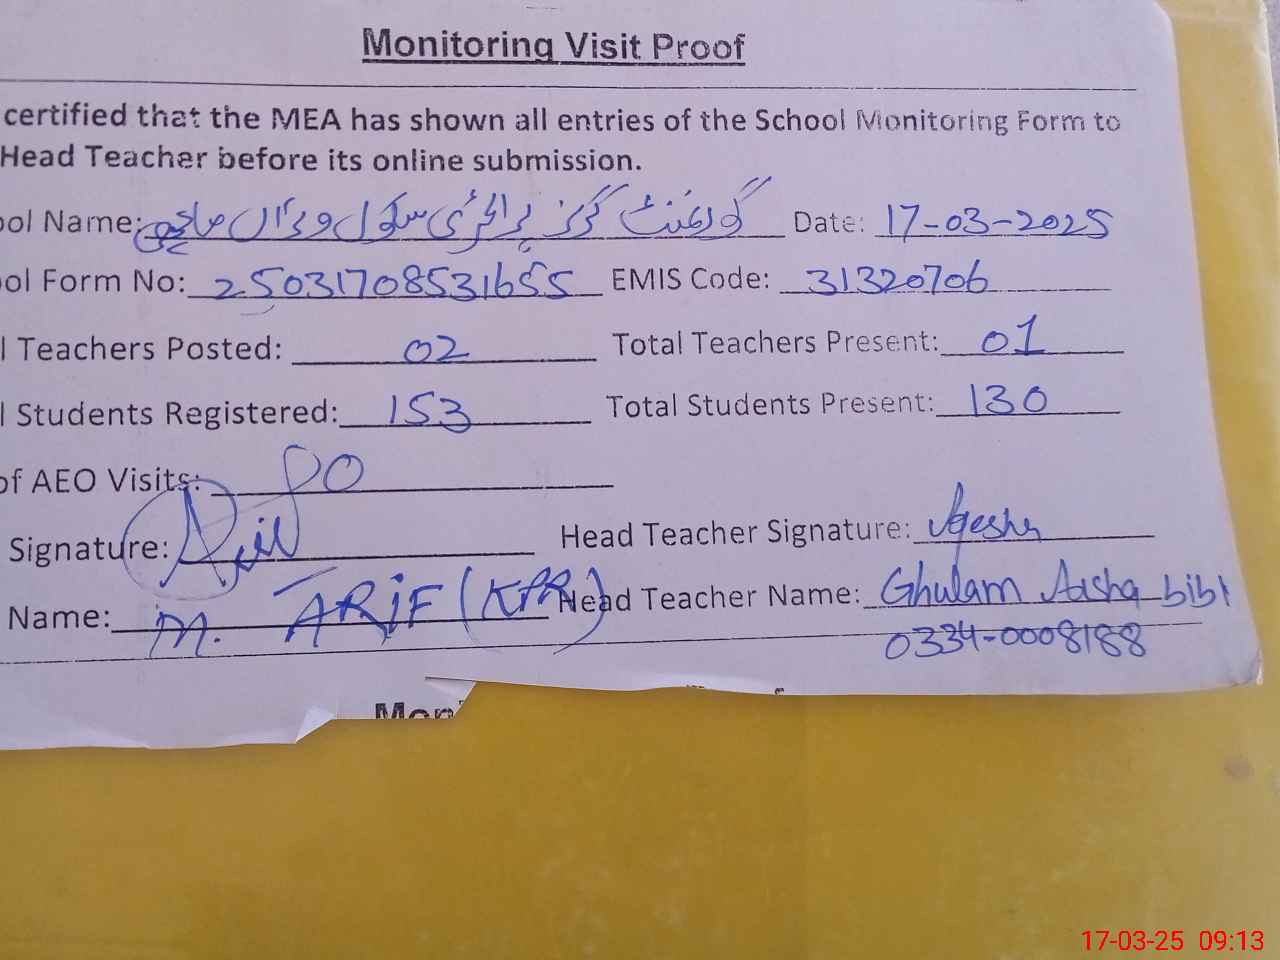 Monitoring Visit Proof
certified that the MEA has shown all entries of the School Monitoring Form to
Head Teacher before its online submission.
ool Name: گورنمنٹ گرلز پرائمری سکول Date: 17-03-2025
ool Form No: 25031708531655 EMIS Code: 31320706
l Teachers Posted: 02 Total Teachers Present: 01
l Students Registered: 153 Total Students Present: 130
of AEO Visits:
Signature: Head Teacher Signature: Ayesha
Name: M. ARiF (KPR) Head Teacher Name: Ghulam Aisha bibi
0334-0008188
17-03-25 09:13